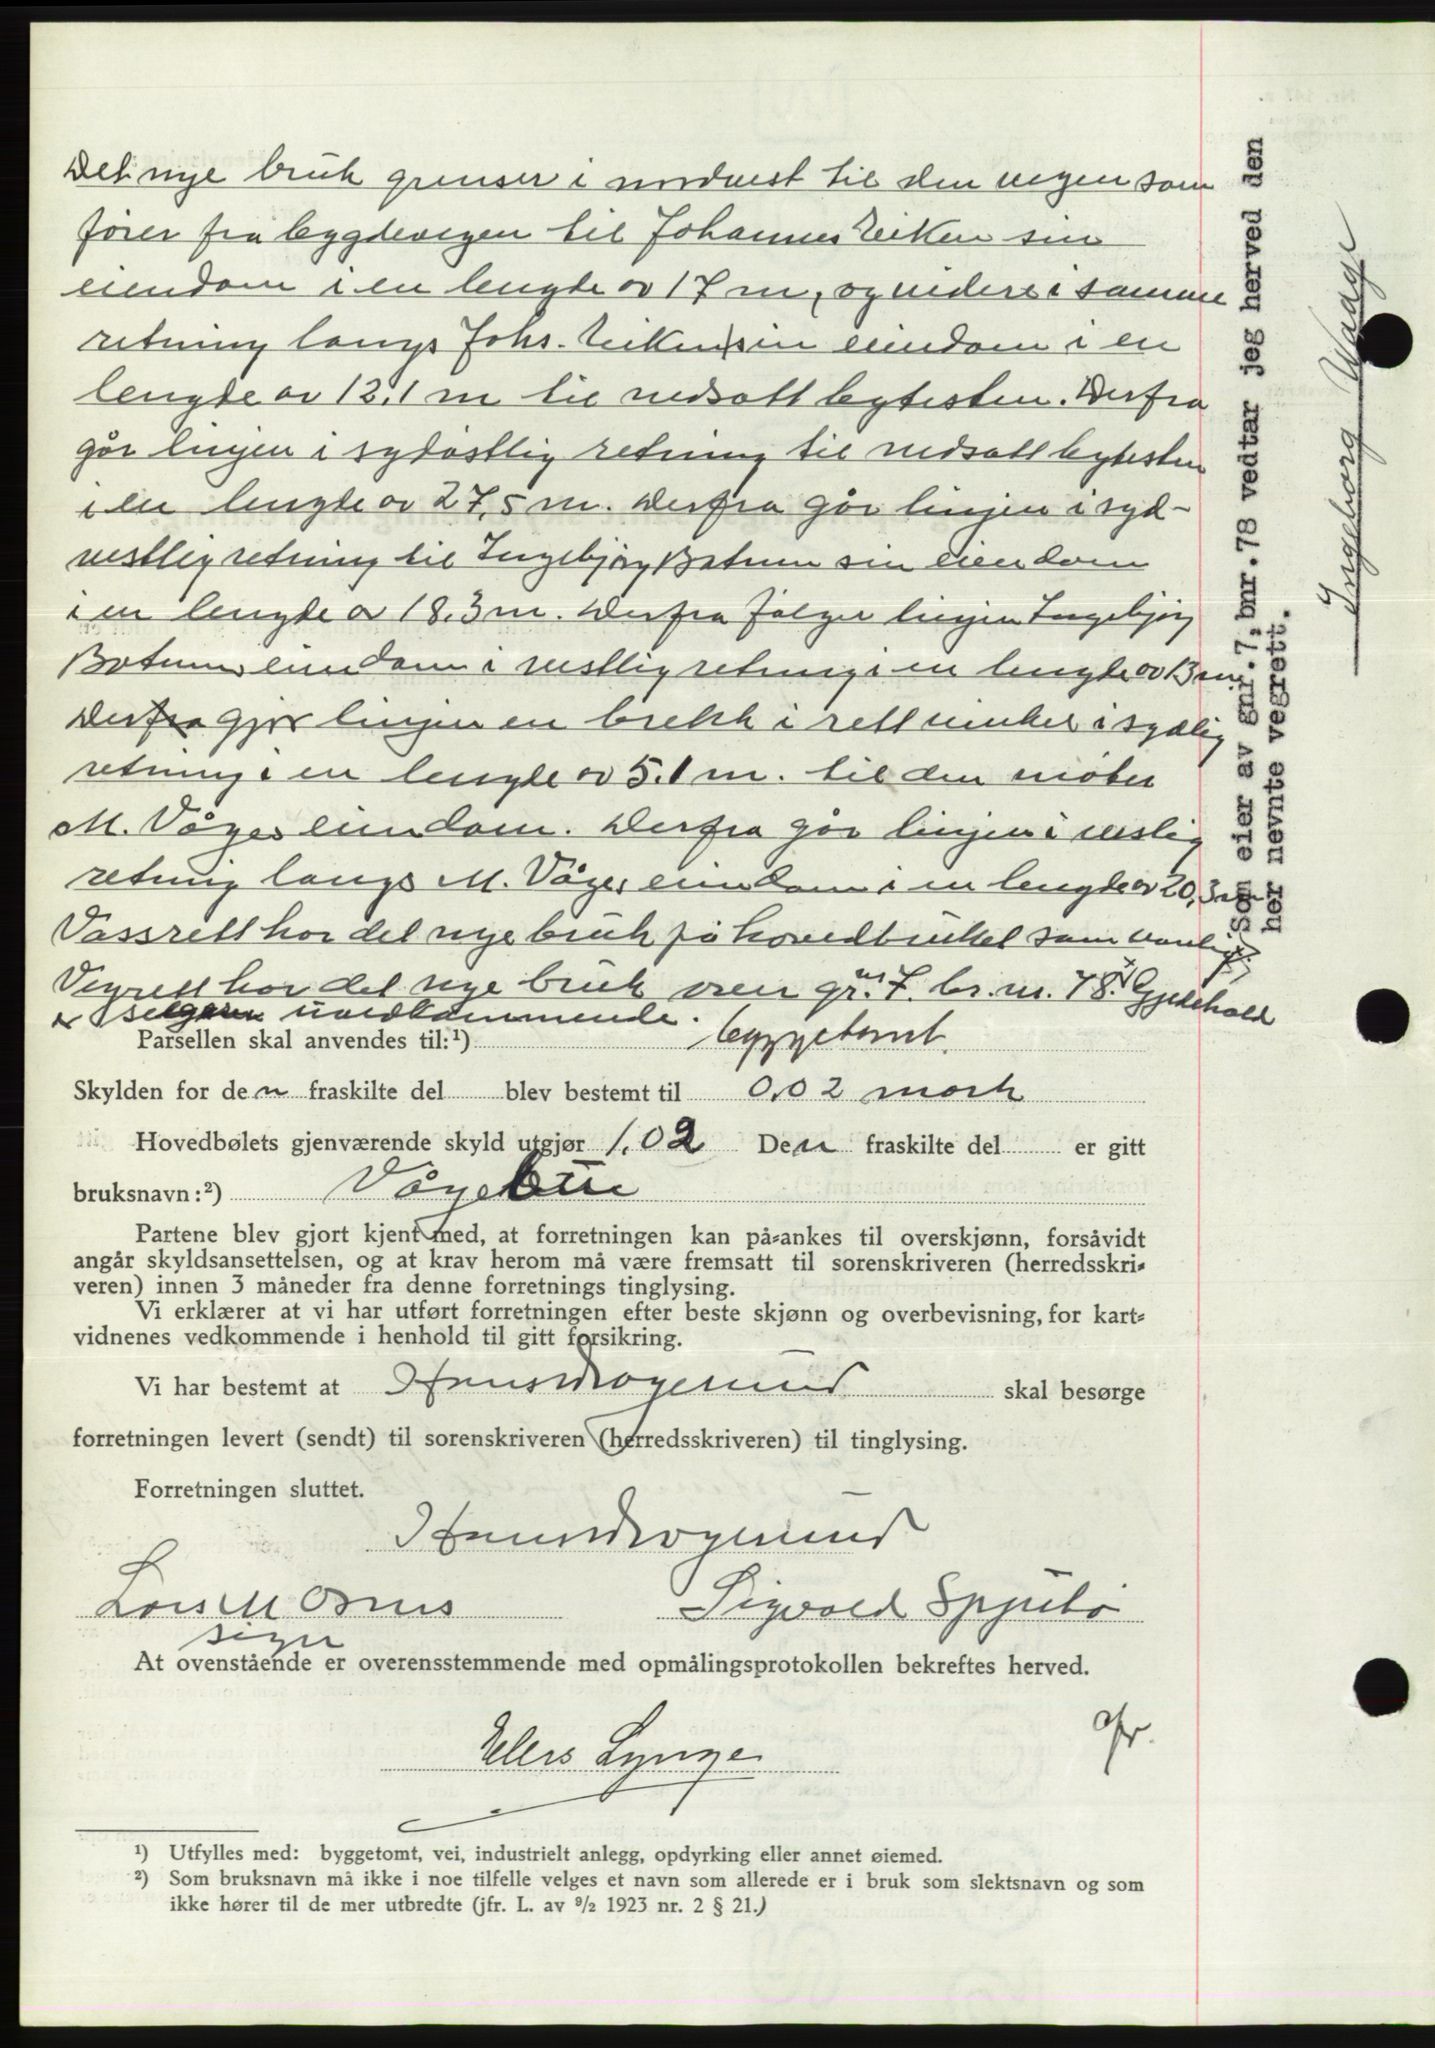 Det nye bruk grenser i nordvest til den vegen som
fører fra bygdevegen til Johannes Eiken sin
eiendom i en lengde av 17 m, og videre i samme
retning langs Johs. Eiken sin eiendom i en
lengde av 12,1 m til nedsatt bytesten. Derfra
går linjen i sydøstlig retning til nedsatt bytesten
i en lengde av 27,5 m. Derfra går linjen i syd-
vestlig retning til Ingebjørg Botnen sin eiendom
i en lengde av 18,3 m. Derfra følger linjen Ingebjørg
Botnens eiendom i vestlig retning i en lengde av 13 m
Derfra gjør linjen en brekk i rett vinkel i sydlig
retning i en lengde av 5.1 m. til den møter
M. Våges eiendom. Derfra går linjen i vestlig
retning langs M. Våges eiendom i en lengde av 20,3 m
Vassrett har det nye bruk på hovedbruket som vanlig.
Vegrett har det nye bruk over gr. nr 7. br. nr. 78. x) Gjerdehold
er selgeren uvedkommende.
Parsellen skal anvendes til:¹) byggetomt.
Skylden for den fraskilte del blev bestemt til 0,02 mark
Hovedbølets gjenværende skyld utgjør 1,02 Den fraskilte del er gitt
bruksnavn:²) Vågebu
Partene blev gjort kjent med, at forretningen kan på-ankes til overskjønn, forsåvidt
angår skyldsansettelsen, og at krav herom må være fremsatt til sorenskriveren (herredsskri-
veren) innen 3 måneder fra denne forretnings tinglysing.
Vi erklærer at vi har utført forretningen efter beste skjønn og overbevisning, for kart-
vidnenes vedkommende i henhold til gitt forsikring.
Vi har bestemt at Hans Dragesund skal besørge
forretningen levert (sendt) til sorenskriveren (herredsskriveren) til tinglysing.
Forretningen sluttet.
Hans Dragesund
Lars M Osnes Sigvald Spjutø
sign
At ovenstående er overensstemmende med opmålingsprotokollen bekreftes herved.
Elers Lynge
¹) Utfylles med: byggetomt, vei, industrielt anlegg, opdyrking eller annet øiemed.
²) Som bruksnavn må ikke i noe tilfelle velges et navn som allerede er i bruk som slektsnavn og som
ikke hører til de mer utbredte (jfr. L. av 9/2 1923 nr. 2 § 21.)
x) Som eier av gnr. 7, bnr. 78 vedtar jeg herved den
her nevnte vegrett.
Ingeborg Waage